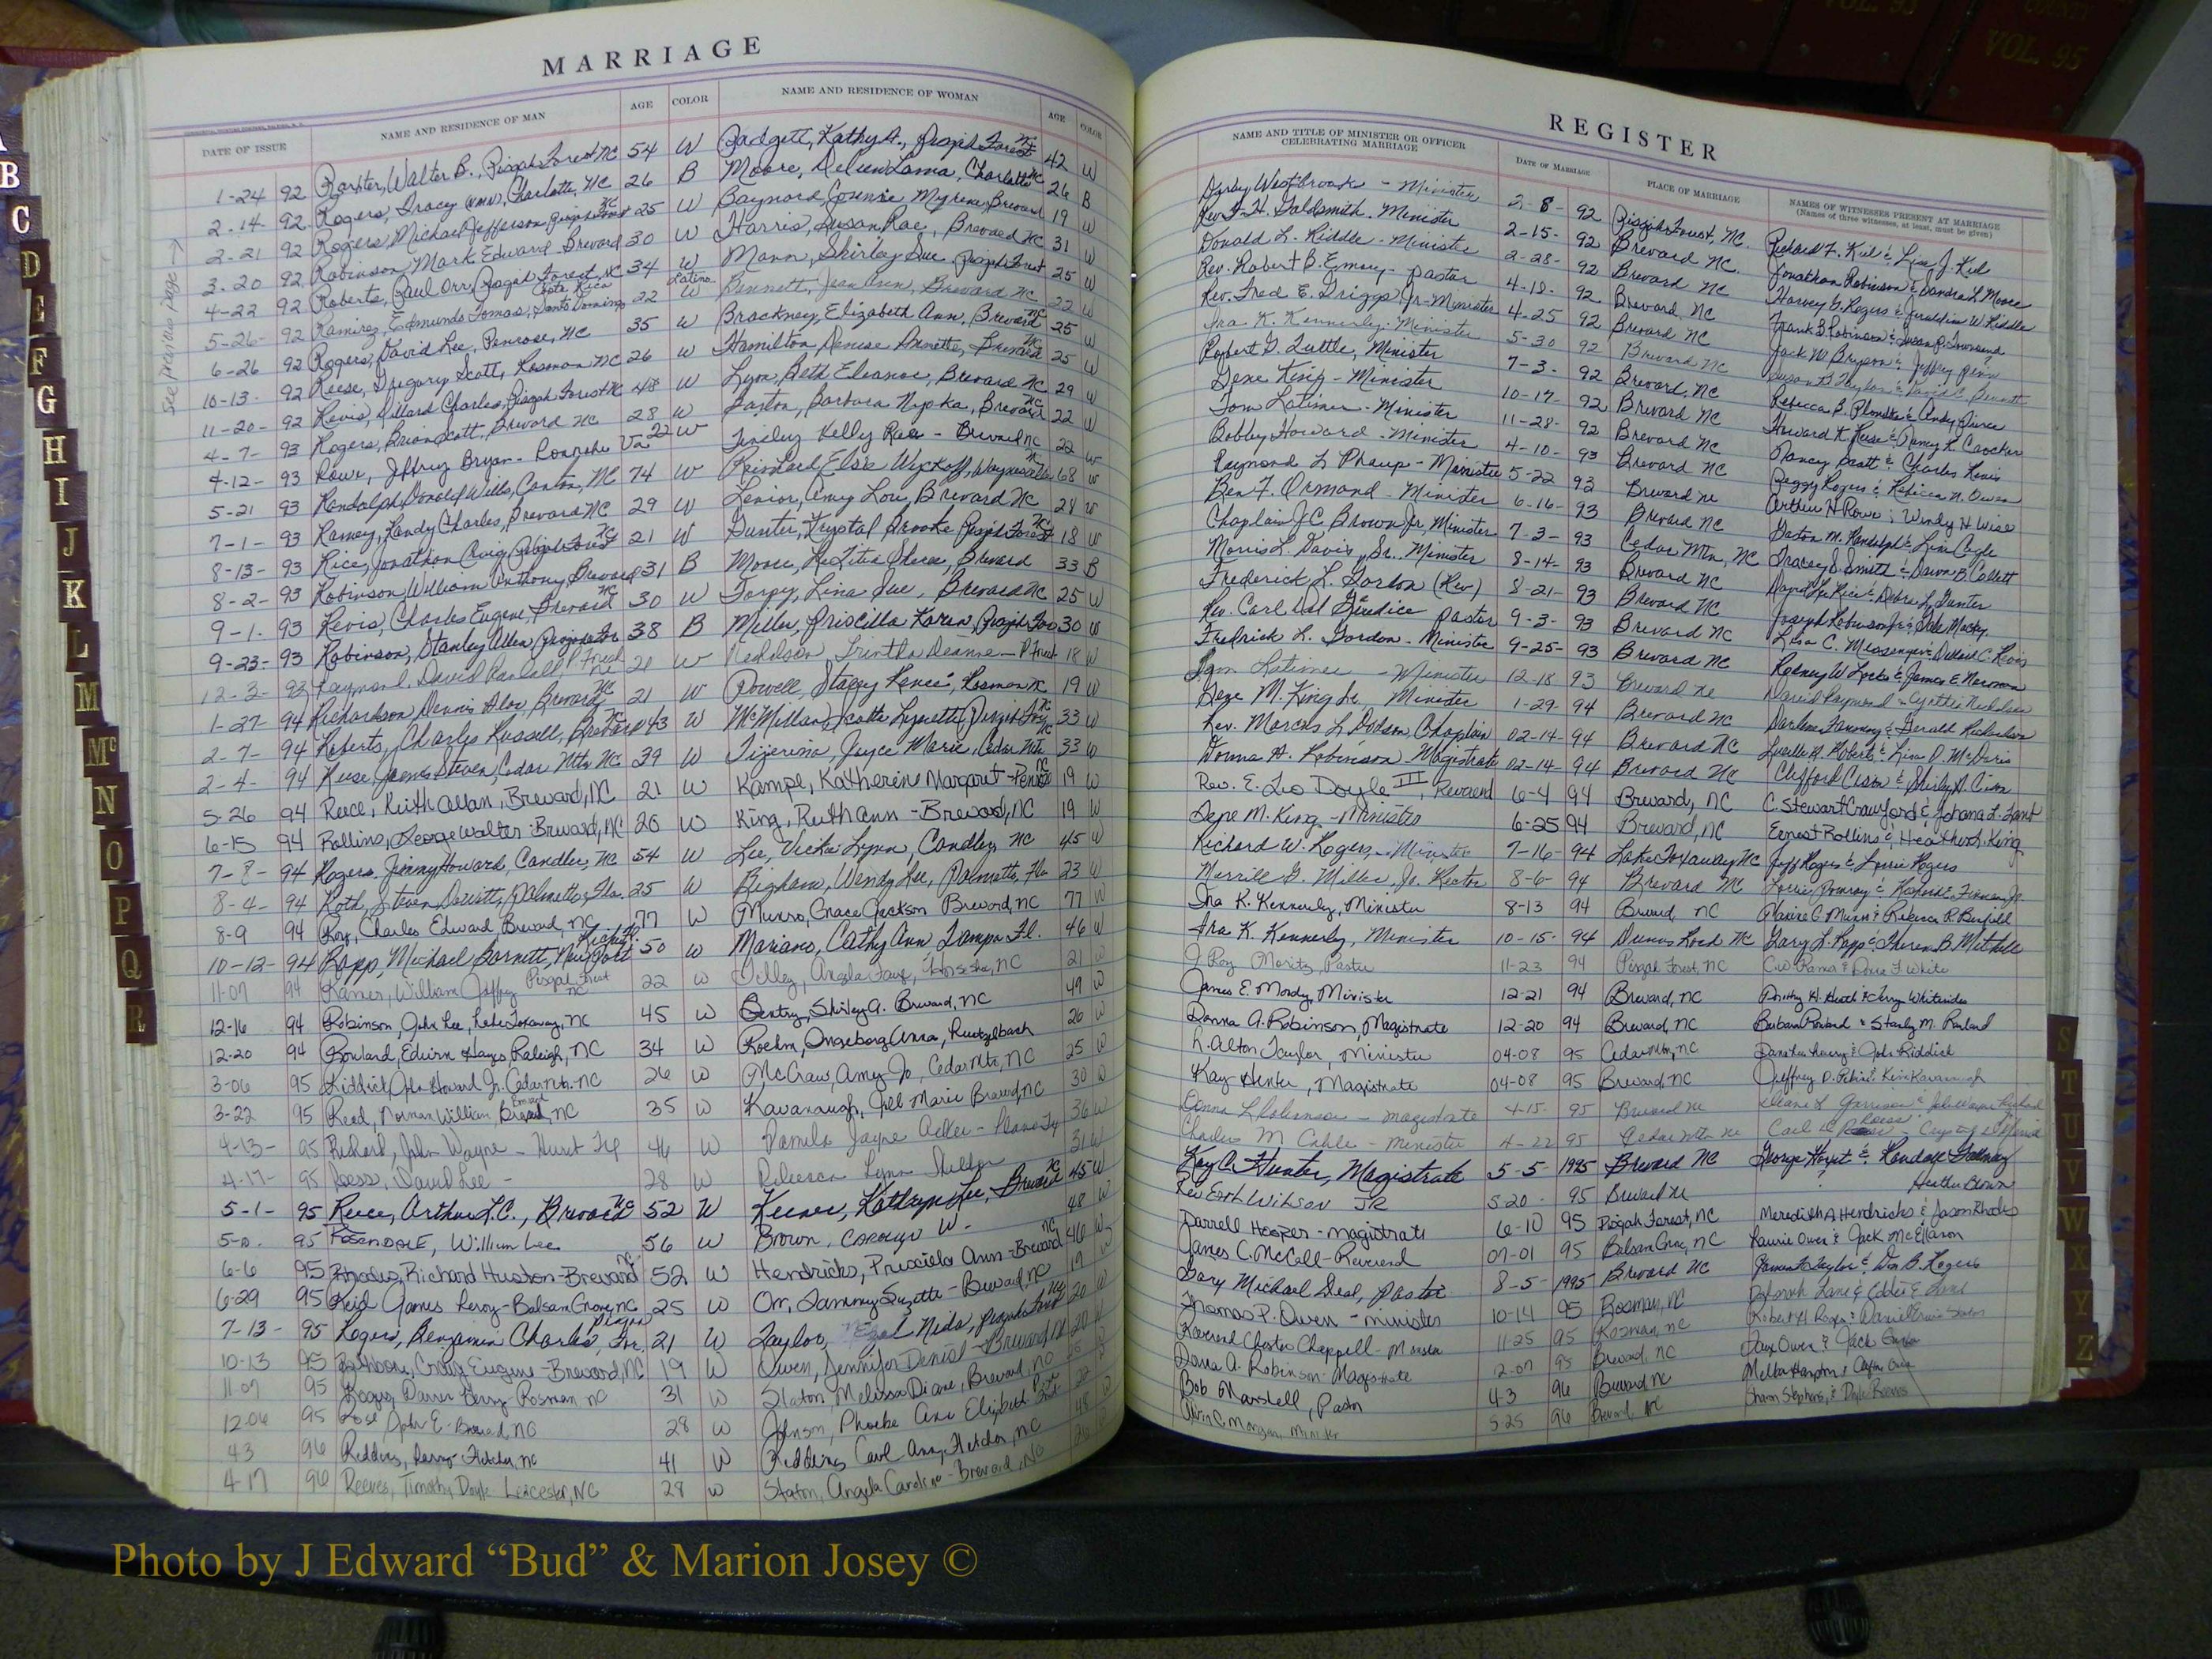 MARRIAGE
DATE OF ISSUE NAME AND RESIDENCE OF MAN AGE COLOR NAME AND RESIDENCE OF WOMAN AGE COLOR
1-24 92 Walter B., Pisgah Forest NC 54 W Padgett, Kathy A., Pisgah Forest NC 42 W
2-14- 92 Rogers, Tracy Charlotte, NC 26 B Moore, Charlotte NC 26 B
2-21 92 Rogers, Michael Jefferson Pisgah Forest NC 25 W Baynard, Connie Myrene, Brevard 19 W
3-20 92 Robinson, Mark Edward Brevard 30 W Harris, Susan Rae, Brevard NC 31 W
4-22 92 Roberts, Paul Orr, Pisgah Forest, NC 34 W Mann, Shirley Sue Pisgah Forest 25 W
5-26- 92 Ramirez, Edmundo Tomas, Santo Domingo Costa Rica 22 Latino W Bennett, Jean Ann, Brevard NC 22 W
6-26 92 Rogers, David Lee, Penrose, NC 35 W Brackney, Elizabeth Ann, Brevard NC 25 W
10-13- 92 Reese, Gregory Scott, Rosman NC 26 W Hamilton, Denise Annette, Brevard NC 25 W
11-20- 92 Revis, Dillard Charles, Pisgah Forest NC 48 W Lyon, Beth Eleanor, Brevard NC 29 W
4-7- 93 Rogers, Brian Scott, Brevard NC 28 W Barbara Brevard NC 22 W
4-12- 93 Rowe, Jeffrey Bryan - Roanoke Va 22 W Tinsley Kelly Brevard NC 22 W
5-21 93 Randolph, Donald Wills, Canton, NC 74 W Elsie Wyckoff, Waynesville 68 W
7-1- 93 Ramey, Randy Charles, Brevard NC 29 W Lenior, Amy Lou, Brevard NC 28 W
8-13- 93 Rice, Jonathan Craig, Pisgah Forest NC 21 W Gunter, Krystal Brooke Pisgah Forest NC 18 W
8-2- 93 Robinson, William Anthony Brevard 31 B Moore, Brevard 33 B
9-1- 93 Revis, Charles Eugene, Brevard NC 30 W Torpy, Lina Sue, Brevard NC 25 W
9-23- 93 Robinson, Stanley Allen Pisgah For 38 B Miller, Priscilla Karen, Pisgah For 30 W
12-3- 93 Raymond, David Randell, P Forest 20 W Nicholson, Trintha Deanne - P Forest 18 W
1-27- 94 Richardson Dennis Alan, Brevard NC 21 W Powell, Stacey Renee, Rosman NC 19 W
2-7- 94 Roberts, Charles Russell, Brevard NC 43 W McMillan, Scotta Lynette, Pisgah For NC 33 W
2-4- 94 Reese, James Steven, Cedar Mtn NC 39 W Tijerina, Joyce Marie, Cedar Mtn NC 33 W
5-26 94 Reece, Keith Allan, Brevard, NC 21 W Kampe, Katherine Margaret - Penrose NC 19 W
6-15 94 Rollins, George Walter - Brevard, NC 20 W King, Ruth Ann - Brevard, NC 19 W
7-8- 94 Rogers, Jimmy Howard, Candler, NC 54 W Lee, Vickie Lynn, Candler, NC 45 W
8-4- 94 Roth, Steven Palmetto, Fla. 25 W Bigham, Wendy Lee, Palmetto, Fla 23 W
8-9 94 Roy, Charles Edward, Brevard, NC 77 W Munro, Grace Jackson Brevard, NC 77 W
10-12- 94 Rapp, Michael Barnett, New Port Richey 50 W Mariano, Cathy Ann Tampa Fl. 46 W
11-07 94 Ramer, William Jeffrey Pisgah Forest NC 22 W Tilley, Angela Faye, Horse Shoe, NC 21 W
12-16 94 Robinson, John Lee, Lake Toxaway, NC 45 W Gentry, Shirley A. Brevard, NC 49 W
12-20 94 Rowland, Edwin Hayes Raleigh, NC 34 W Roehm, Ingeborg Anna, 26 W
3-06 95 Riddick, John Howard Jr. Cedar Mtn. NC 26 W McCraw, Amy Jo, Cedar Mtn, NC 25 W
3-22 95 Reed, Norman William Brevard, NC 35 W Kavanaugh, Jill Marie Brevard NC 30 W
4-13- 95 Richard, John Wayne - Hurst Tx 46 W Pamela Jayne Adler - Plano Tx 36 W
4-17- 95 Ross, David Lee - 28 W Rebecca Lynn 31 W
5-1- 95 Reece, Arthur L.C., Brevard NC 52 W Keener, Kathryn Lee, Brevard NC 45 W
95 Rosendale, William Lee 56 W Brown, Carolyn W. 48 W
6-6 95 Rhodes, Richard Huston - Brevard NC 52 W Hendricks, Priscilla Ann - Brevard NC 46 W
6-29 95 Reid James Leroy - Balsam Grove, NC 25 W Orr, Tammy Suzette - Brevard, NC 19 W
7-13- 95 Rogers, Benjamin Charles, Jr. 21 W Taylor, Nida, Pisgah Forest NC 20 W
10-13 95 Rathbone, Craig Eugene - Brevard, NC 19 W Owen, Jennifer Denise - Brevard NC 20 W
11-07 95 Rogers, Darren Rosman NC 31 W Staton, Melissa Diane, Brevard, NC
12-06 95 John E - Brevard, NC 28 W Johnson, Phoebe Ann Elizabeth
4-3 96 Fletcher, NC 41 W Fletcher, NC 48
4-17 96 Reeves, Timothy Doyle - Leicester, NC 28 W Staton, Angela Caroline - Brevard, NC
see previous page →
REGISTER
NAME AND TITLE OF MINISTER OR OFFICER CELEBRATING MARRIAGE DATE OF MARRIAGE PLACE OF MARRIAGE NAMES OF WITNESSES PRESENT AT MARRIAGE
(Names of three witnesses, at least, must be given)
Westbrook - Minister 2-8- 92 Pisgah Forest, NC. Richard F. Kiel & Lisa J. Kiel
Rev. F. H. Goldsmith - Minister 2-15- 92 Brevard NC. Jonathan Robinson & Sandra L Moore
Donald L. Riddle - Minister 2-28- 92 Brevard NC Harvey G. Rogers & Geraldine W. Riddle
Rev. Robert B. Emory - Pastor 4-18- 92 Brevard, NC Frank B Robinson & Susan R. Townsend
Rev. Fred E. Griggs, Jr - Minister 4-25 92 Brevard NC Jack W Bryson & Jeffrey Penn
Ira K. Kennerly - Minister 5-30 92 Brevard NC Susan B Taylor & David Bennett
Robert G. Tuttle, Minister 7-3- 92 Brevard, NC Rebecca B. & Andy Pierce
Gene King - Minister 10-17- 92 Brevard NC Howard K. Reese & Nancy K. Crocker
Tom Latimer - Minister 11-28- 92 Brevard NC Nancy Scott & Charles Revis
Bobby Howard - Minister 4-10- 93 Brevard NC Peggy Rogers & Rebecca N. Owen
Raymond L Phaup - Minister 5-22 93 Brevard NC Arthur H Rowe & Wendy H Wise
Ben F. Ormand - Minister 6-16- 93 Brevard NC Gaston M. Randolph & Lisa Cagle
Chaplain J.C. Brown Jr, Minister 7-3- 93 Cedar Mtn, NC Tracey S. Smith & Dawn B. Collett
Morris L. Davis, Sr. Minister 8-14- 93 Brevard NC David Lee Rice & Debra L. Gunter
Frederick L. Gordon (Rev) 8-21- 93 Brevard NC Joseph Robinson Jr &
Rev. Carl Del Giudice Pastor 9-3- 93 Brevard NC Lisa C. Messenger & C. Revis
Fredrick L. Gordon - Minister 9-25- 93 Brevard NC Rodney W Locks & James E. Norman
Tom Latimer - Minister 12-18 93 Brevard NC David Raymond & Nicholson
Gene M. King Sr Minister 1-29- 94 Brevard NC Darlene & Gerald Richardson
Rev. Marcus L Dodson, Chaplain 02-14-94 Brevard NC Luella H. Roberts & Lisa D. McDaris
Donna A. Robinson - Magistrate 02-14-94 Brevard NC Clifford & Shirley A.
Rev. E. Leo Doyle III, Reverend 6-4 94 Brevard, NC C. Stewart Crawford & Johana L. Gant
Gene M. King - Minister 6-25 94 Brevard, NC Ernest Rollins & Heather L. King
Richard W. Rogers, Minister 7-16- 94 Lake Toxaway NC Jeff Rogers & Lorrie Rogers
Merrill G. Miller, Jr. Rector 8-6- 94 Brevard NC Lorrie Pomroy &
Ira K. Kennerly, Minister 8-13 94 Brevard, NC Elaine C. Munro & Rebecca R. Banfield
Ira K. Kennerly, Minister 10-15- 94 Dunns Rock NC Gary L. Rapp & Theresa B. Mitchell
J. Roy Moritz, Pastor 11-23 94 Pisgah Forest, NC C.W. Ramer & Dona F. White
James E. Moody, Minister 12-21 94 Brevard, NC Dorothy H. Heath & Terry Whitesides
Donna A. Robinson, Magistrate 12-20 94 Brevard, NC Barbara Rowland & Stanly M. Rowland
L. Alton Taylor, Minister 04-08 95 Cedar Mtn, NC & John Riddick
Kay Hunter, Magistrate 04-08 95 Brevard, NC Jeffrey D. & Kim Kavanaugh
Donna L Robinson - magistrate 4-15- 95 Brevard NC Garrison & John Wayne Richard
Charles M Cable - minister 4-22 95 Cedar Mtn NC Carl D Ross - Crystal
Kay C. Hunter, Magistrate 5-5- 1995 Brevard NC George Hoyt & Kandace Galloway
Rev Earl Wilson Jr 5-20- 95 Brevard NC Heather Brown
Darrell Hooper - magistrate 6-10 95 Pisgah Forest, NC Meredith A Hendricks & Jason Rhodes
James C. McCall - Reverend 07-01 95 Balsam Grove, NC Laurie Owen & Jack McEllaron
Gary Michael Seal, Pastor 8-5- 1995 Brevard NC James L Taylor & Don B. Rogers
Thomas P. Owen - minister 10-14 95 Rosman, NC Deborah Lane & Eddie E
Reverend Charles Chappell - 11-25 95 Rosman, NC Robert H Rogers &
Donna A. Robinson Magistrate 12-07 95 Brevard, NC Owen & Jack
Bob Marshall, Pastor 4-3 96 Brevard NC Melba Hampton &
Minister 5-25 96 Brevard, NC Sharon Stephens, & Doyle Reeves
B
C
D
E
F
G
H
I
J
K
L
M
Mc
N
O
P
Q
R
S
T
U
V
W
X
Y
Z
VOL. 95
Photo by J Edward “Bud” & Marion Josey ©